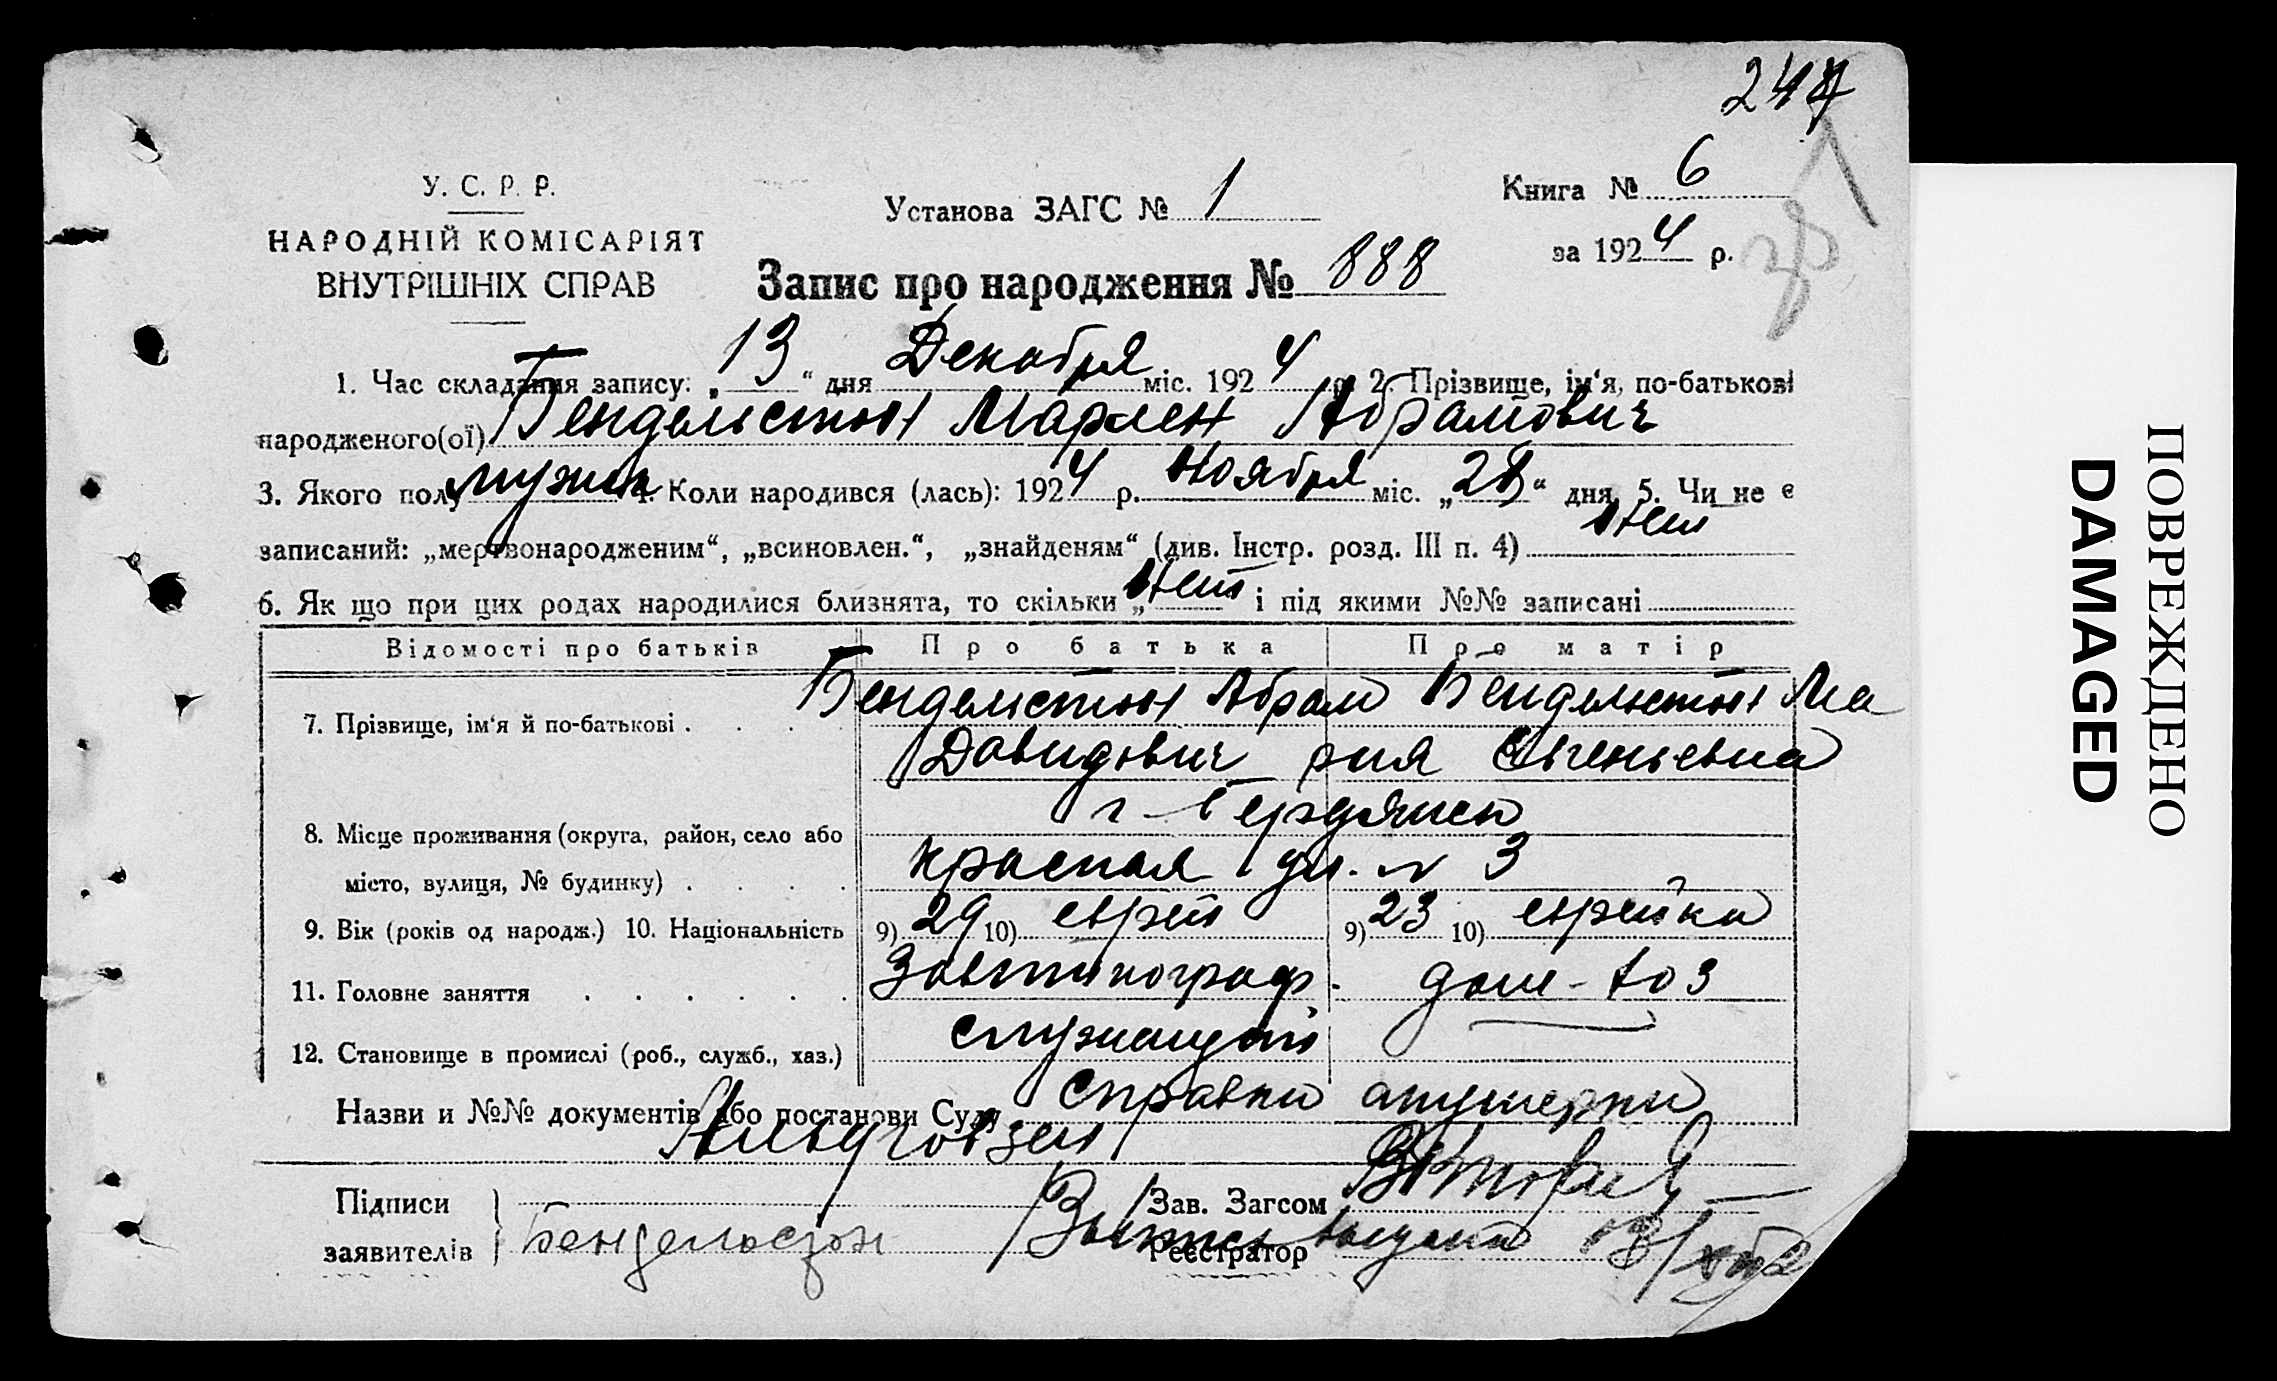 247
У. С. Р. Р.
НАРОДНІЙ КОМІСАРІЯТ
ВНУТРІШНІХ СПРАВ
Установа ЗАГС № 1
Книга № 6
за 1924 р.
Запис про народження № 888
1. Час складання запису: „13“ дня Декабря міс. 1924 р. 2. Прізвище, ім‘я, по-батькові
народженого(ої) Бендельстон Марлен Абрамович
3. Якого полу мужск 4. Коли народився (лась): 1924 р. Ноября міс. „28“ дня, 5. Чи не є
записаний: „мертвонародженим“, „всиновлен.“, „знайденям“ (див. Інстр. розд. III п. 4) Нет
6. Як що при цих родах народилися близнята, то скільки „Нет і під якими №№ записані
Відомості про батьків Про батька Про матір
7. Прізвище, ім‘я й по-батькові Бендельстон Абрам Бендельстон Ма
Давидович рия Евгеньевна
г. Бердянск
8. Місце проживання (округа, район, село або
місто, вулиця, № будинку) Красная ул. № 3
9. Вік (років од народж.) 10. Національність 9) 29 10) еврей 9) 23 10) еврейка
11. Головне заняття Завтипограф. дом-хоз
12. Становище в промислі (роб., служб., хаз.) служащий
Назви и №№ документів або постанови Суду Справки акушерки
Підписи
заявителів
Бендельстон
Зав. Загсом
Реєстратор
ПОВРЕЖДЕНО
DAMAGED